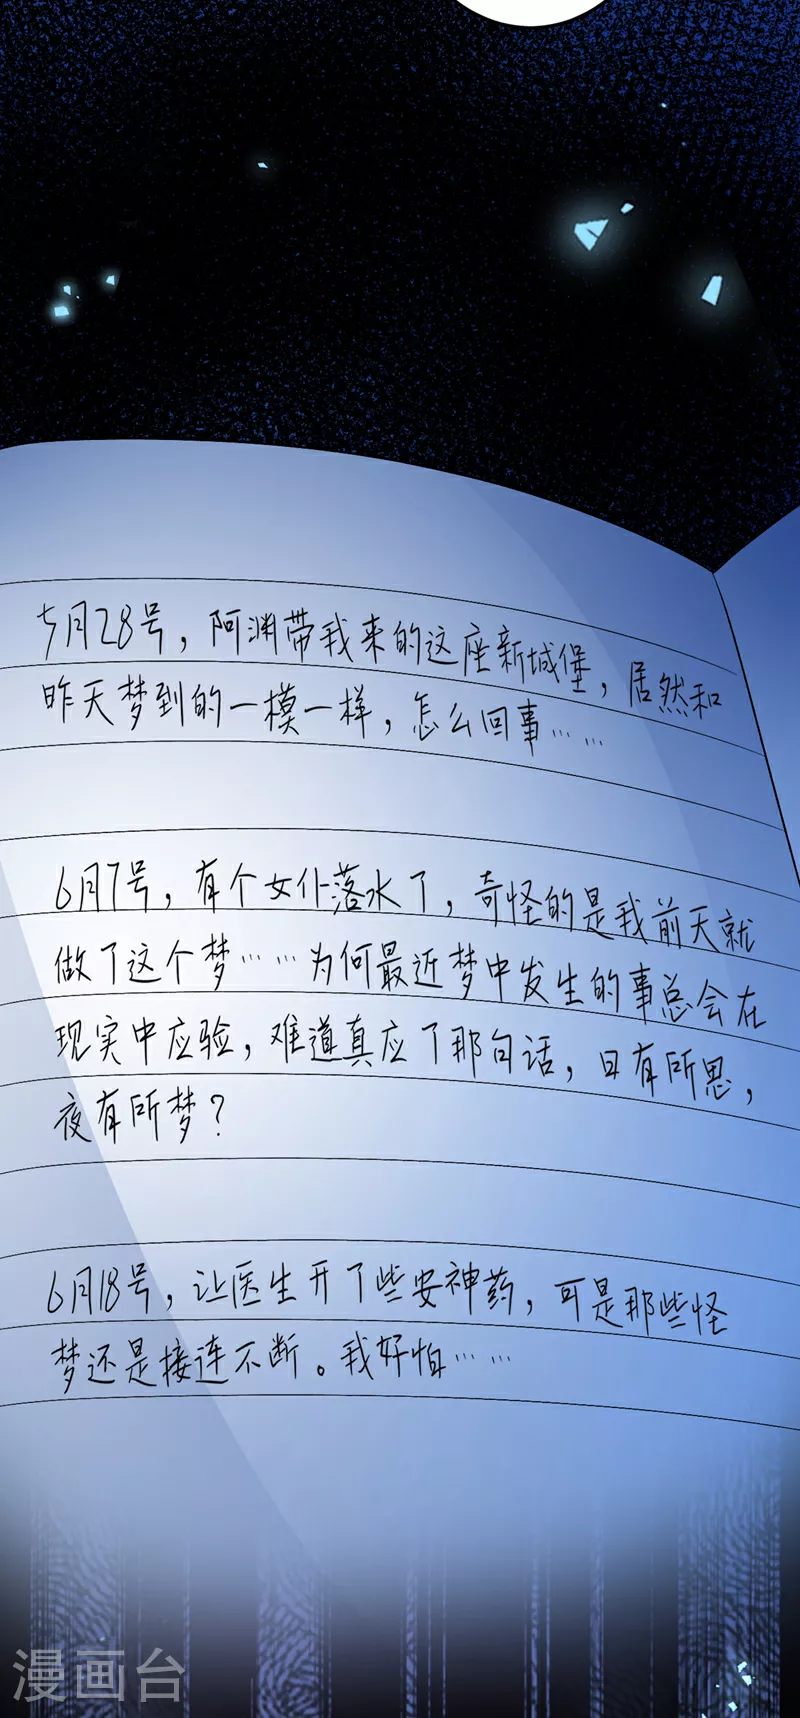 5月28号，阿渊带我来的这座新城堡，居然和
昨天梦到的一模一样，怎么回事……
6月7号，有个女仆落水了，奇怪的是我前天就
做了这个梦……为何最近梦中发生的事总会在
现实中应验，难道真应了那句话，日有所思，
夜有所梦？
6月18号，让医生开了些安神药，可是那些怪
梦还是接连不断。我好怕……
漫画台